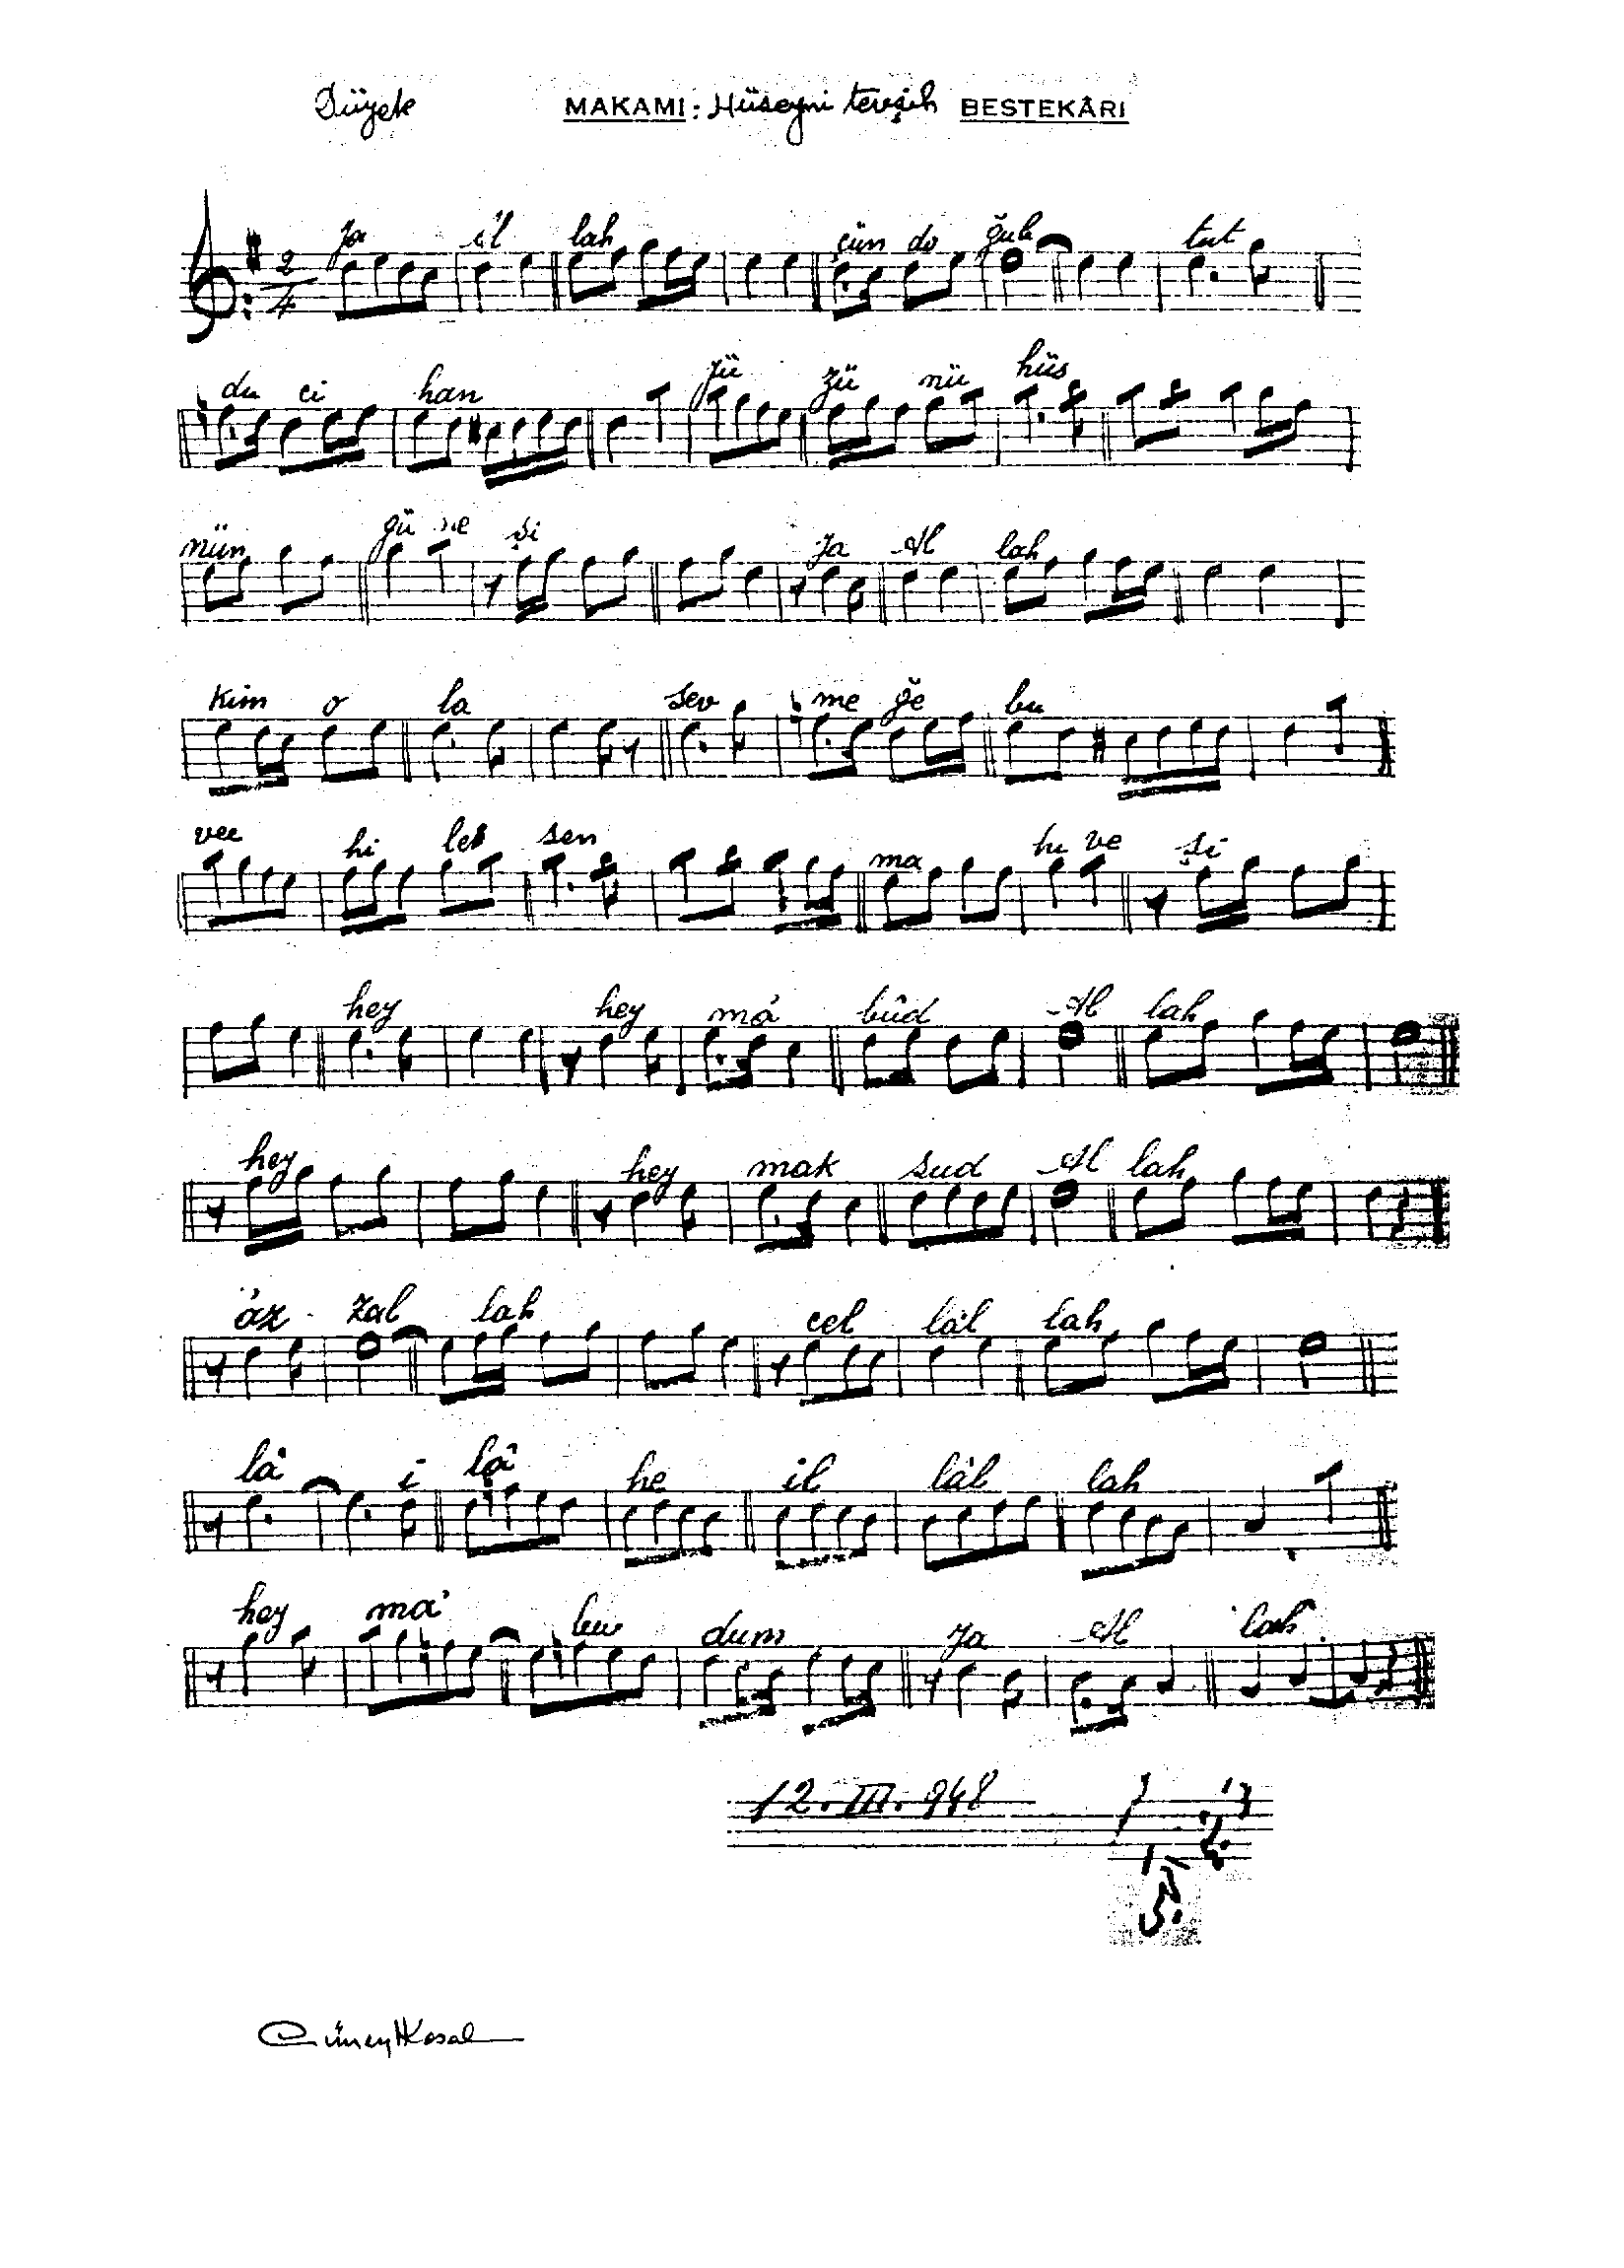 Düyek MAKAMI: Hüseyni tevşih BESTEKÂRI
2/4
Ya Al lah çün do ğub tut
du ci han yü zü nü hüs
nün gü ne şi Ya Al lah
kim o la sev me ğe bu
vec hi le sen ma hı ve şi
hey hey mâ bûd Al lah
hey hey mak sud Al lah
az zal lah cel lâl lah
lâ i lâ he il lâl lah
hey ma' bu dum Ya Al lah
12.III.948
Cüneyt Kosal